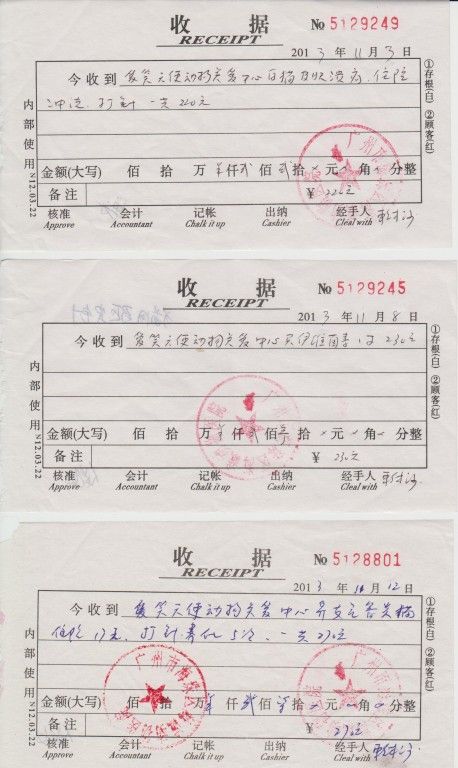 收 据
RECEIPT
No 5129249
2013 年 11 月 3 日
今收到 爱笑天使动物关爱中心 住院
打针 一共220元
金额(大写) 佰 拾 万 仟 贰 佰 贰 拾 元 角 分整
备注
¥ 220元
核准 会计 记帐 出纳 经手人
Approve Accountant Chalk it up Cashier Cleal with
内部使用
N12.03.22
①存根(白) ②顾客(红)
收 据
RECEIPT
No 5129245
2013 年 11 月 8 日
今收到 爱笑天使动物关爱中心 230元
金额(大写) 佰 拾 万 仟 贰 佰 拾 元 角 分整
备注
¥ 230元
核准 会计 记帐 出纳 经手人
Approve Accountant Chalk it up Cashier Cleal with
内部使用
N12.03.22
①存根(白) ②顾客(红)
收 据
RECEIPT
No 5128801
2013 年 月 12 日
今收到 爱笑天使动物关爱中心 猫
住院 打针 一共270元
金额(大写) 佰 拾 万 仟 贰 佰 拾 元 角 分整
备注
¥ 270元
核准 会计 记帐 出纳 经手人
Approve Accountant Chalk it up Cashier Cleal with
内部使用
N12.03.22
①存根(白) ②顾客(红)